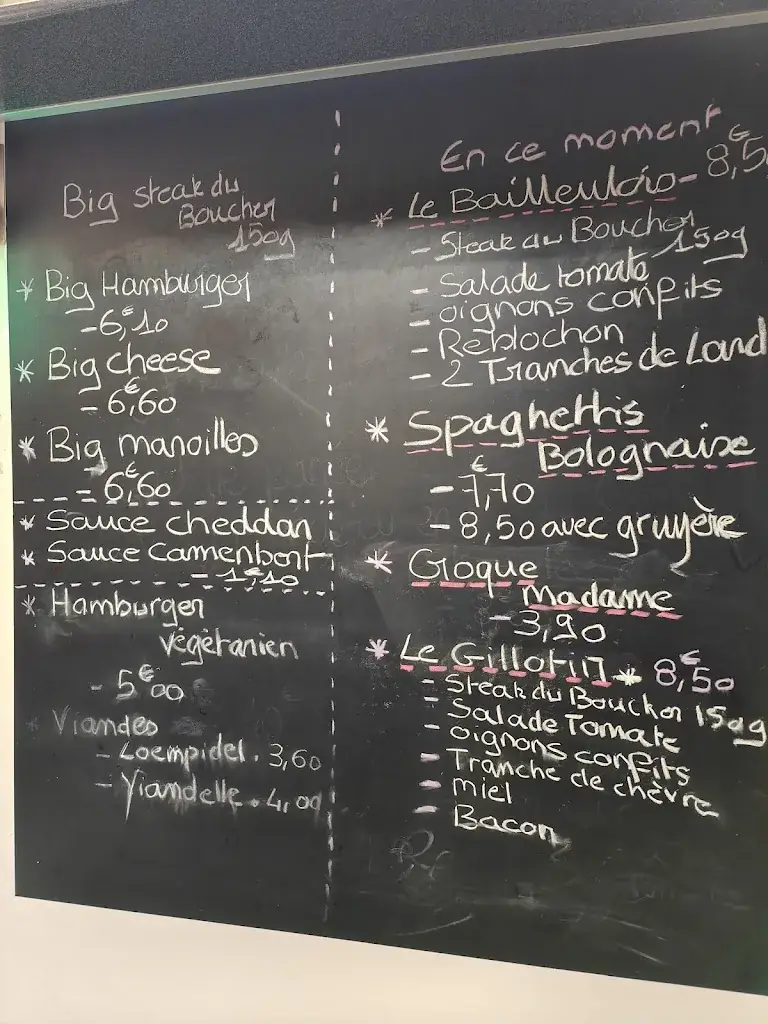 Big steak du
Boucher
150g
* Big Hamburger
- 6,€10
* Big cheese
- 6,€60
* Big maroilles
- 6,€60
* Sauce cheddar
* Sauce Camembert
- 1,€10
* Hamburger
végétarien
- 5€00
* Viandes
- Loempidel . 3,60
- Viandelle . 4,00
En ce moment
* Le Bailleulois - 8,€50
- Steak du Boucher
150g
- Salade tomate
- oignons confits
- Reblochon
- 2 Tranches de Lard
* Spaghettis
Bolognaise
- 7,€70
- 8,50 avec gruyère
* Croque
Madame
- 3,90
* Le Gillotin * 8,€50
- Steak du Boucher 150g
- Salade Tomate
- oignons confits
- Tranche de chèvre
- miel
- Bacon